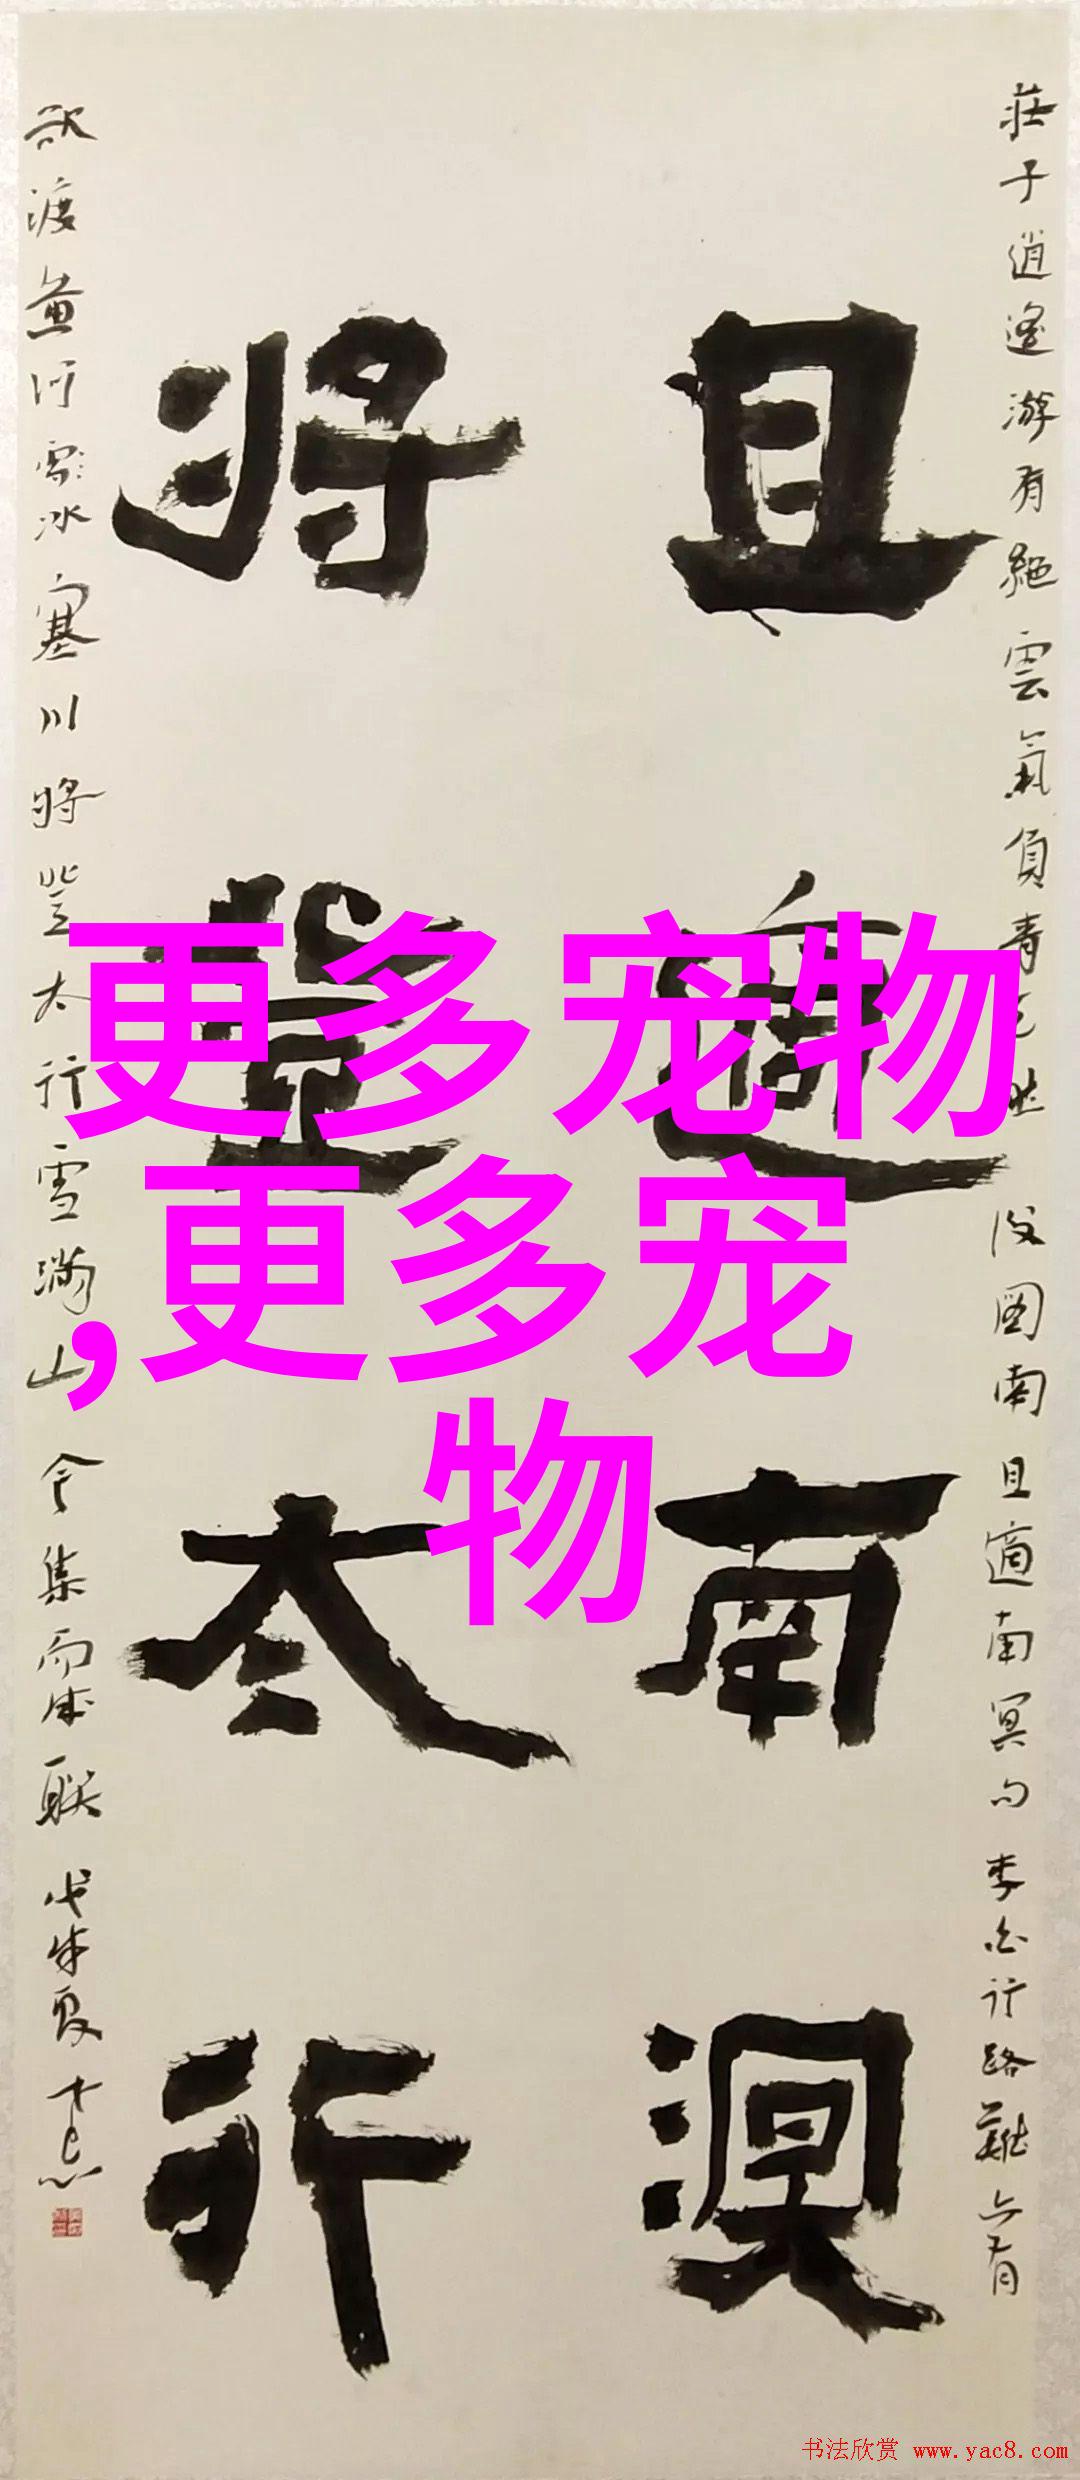 更多宠物
,更多宠物
莊子逍遙游有絕雲氣負青天然後圖南且適南冥句李白行路難亦有
且適南溟
將登太行
欲渡黃河雪冰塞川將登太行雪滿山合集而成聯戊戌夏
书法欣赏 www.yac8.com